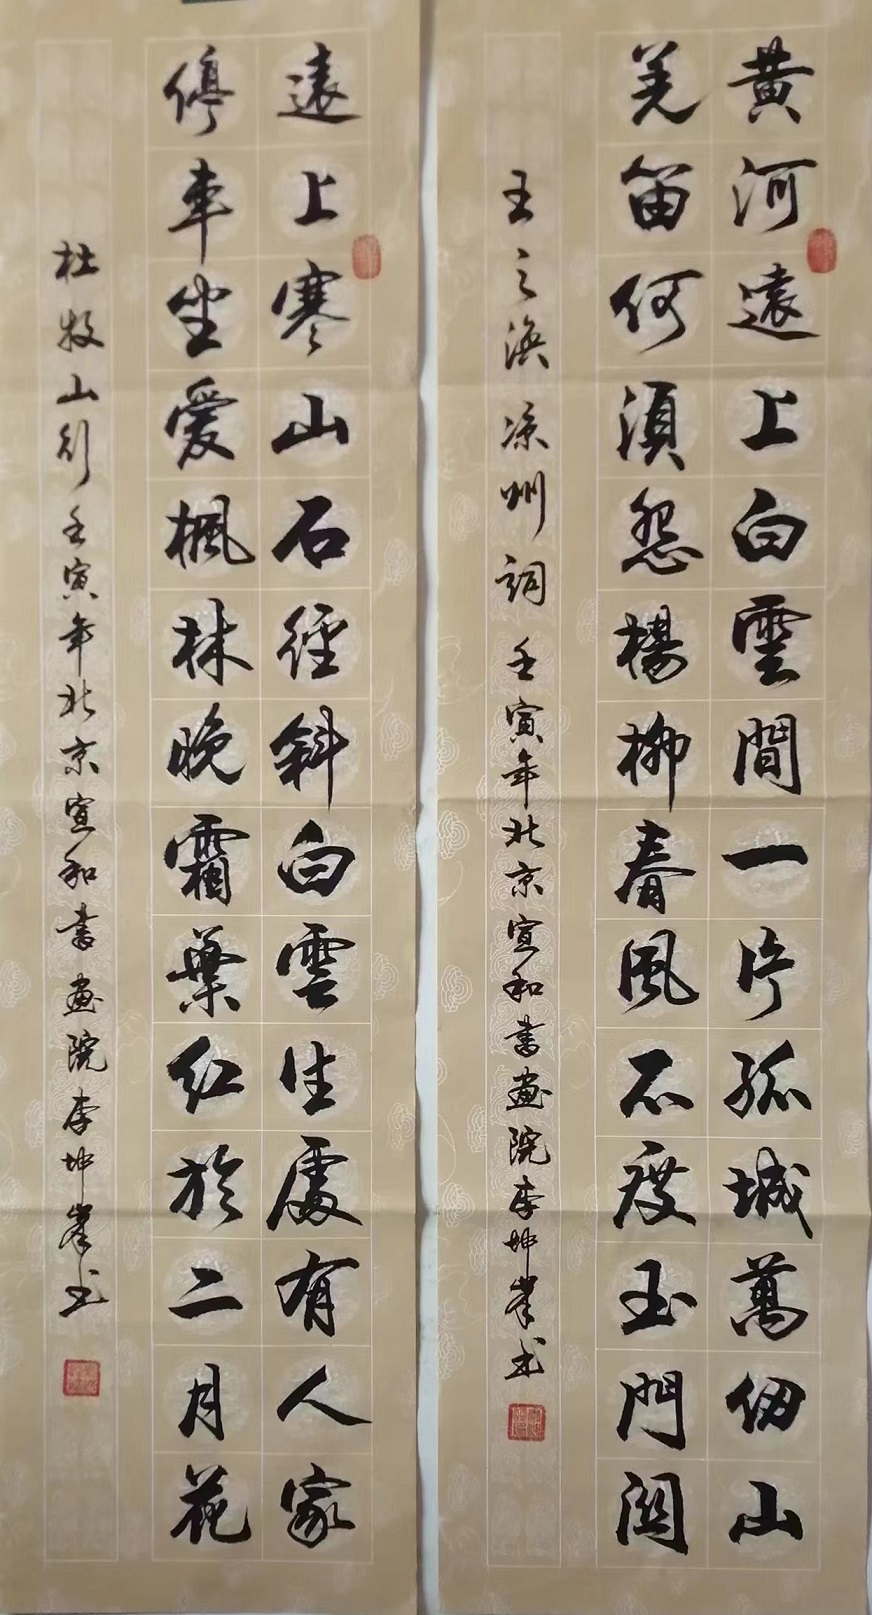 黄河遠上白雲間一片孤城萬仞山
羌笛何須怨楊柳春風不度玉門關
王之渙涼州詞壬寅年北京宣和書画院李坤峯书
遠上寒山石徑斜白雲生處有人家
停車坐愛楓林晚霜葉紅於二月花
杜牧山行壬寅年北京宣和書画院李坤峯书